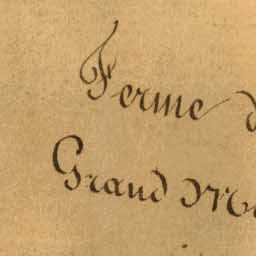 Ferme d
Grand M